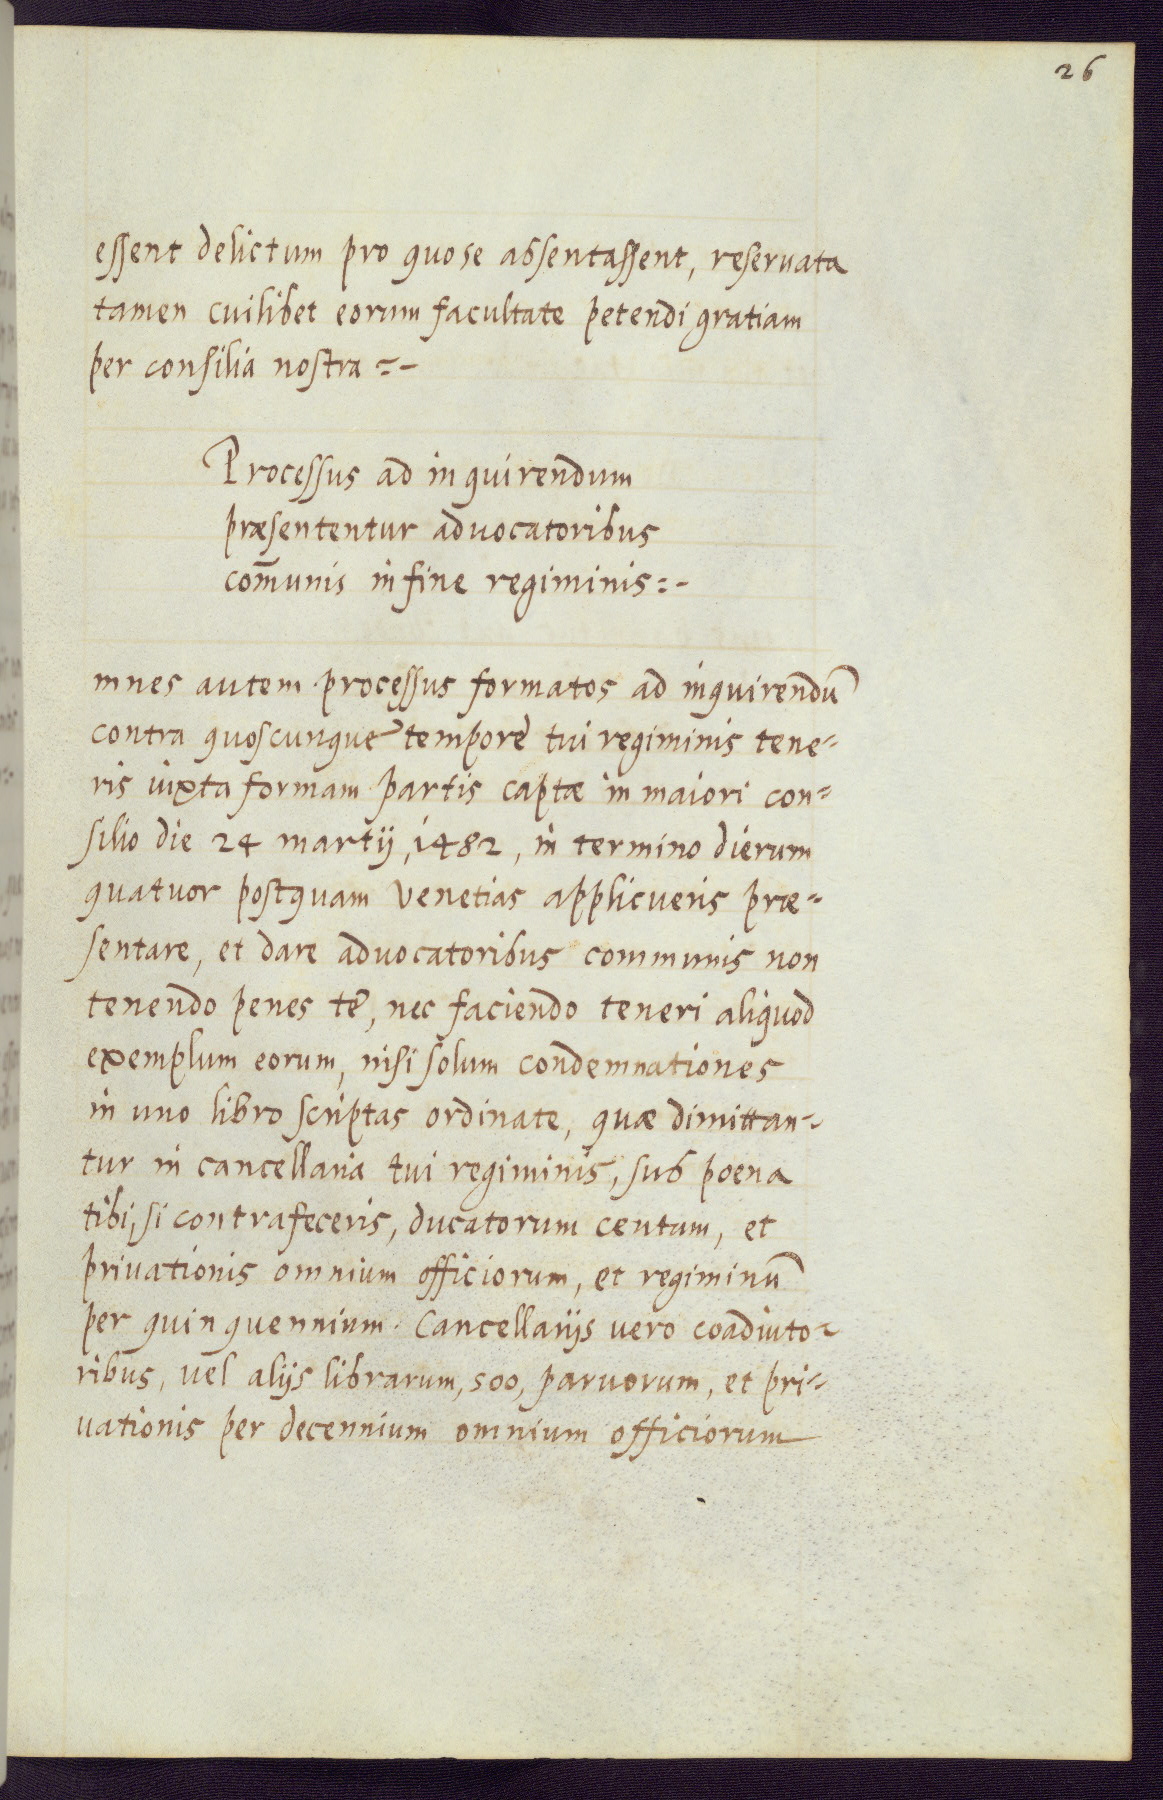 26
essent delictum pro quo se absentassent, reservata
tamen cuilibet eorum facultate petendi gratiam
per consilia nostra =-
Processus ad inquirendum
præsententur advocatoribus
com̄unis in fine regiminis =-
mnes autem processus formatos ad inquirendū
contra quoscunque tempore tui regiminis tene=
ris iuxta formam partis captæ in maiori con=
silio die 24 martij, 1482, in termino dierum
quatuor postquam Venetias applicueris præ=
sentare, et dare advocatoribus communis non
tenendo penes te, nec faciendo teneri aliquod
exemplum eorum, nisi solum condemnationes
in uno libro scriptas ordinate, quæ dimittan=
tur in cancellaria tui regiminis, sub poena
tibi, si contrafeceris, ducatorum centum, et
privationis omnium officiorum, et regiminū
per quinquennium. Cancellarijs vero coadiuto=
ribus, vel alijs librarum, 500, parvorum, et pri=
vationis per decennium omnium officiorum